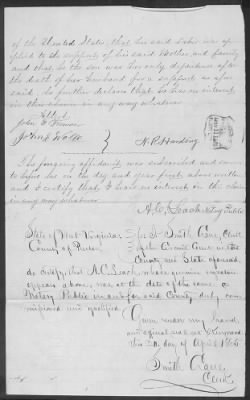 of the United States, that his said labor was ap
plied to the support of his said Mother, and family
and that he the son was her only dependence after
the death of her husband for a support as afore
said. He further declares that he has no interest
in this claim in any way whatever.
Attest
John
John S Watts
N. P. Harding
The foregoing affidavit was subscribed and sworn
to before me on the day and year first above written
and I certify that I have no interest in the claim
in any way whatever.
A. C. Leach Notary Public
State of West Virginia
County of
I Smith Crane, Clerk
of the Circuit Court in the
County and State aforesaid
do certify, that A. C. Leach, whose genuine signature
appears above, was at the date of the same a
Notary Public in and for said County duly com
missioned and qualified.
Given under my hand,
and official seal at Kingwood
this 20 day of April 1866
Smith Crane
Clerk